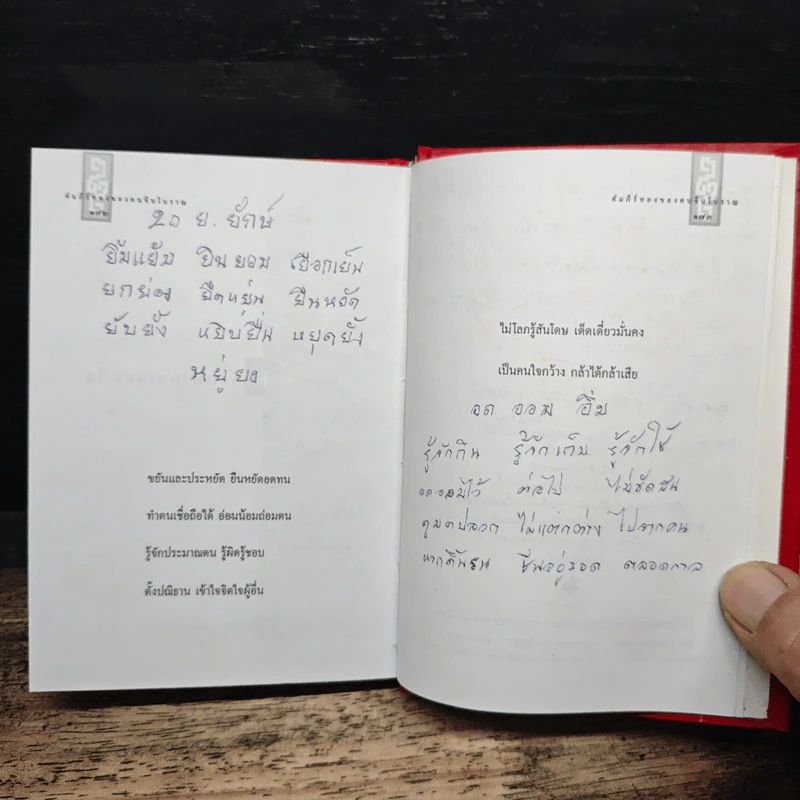 คัมภีร์ทองของคนจีนโบราณ
๑๗๒
๒๐ ย. ยักษ์
ยิ้มแย้ม ยินยอม เยือกเย็น
ยกย่อง ยืดหยุ่น ยืนหยัด
ยับยั้ง หยิบยื่น หยุดยั้ง
ขยันและประหยัด ยืนหยัดอดทน
ทำตนเชื่อถือได้ อ่อนน้อมถ่อมตน
รู้จักประมาณตน รู้ผิดรู้ชอบ
ตั้งปณิธาน เข้าใจจิตใจผู้อื่น
คัมภีร์ทองของคนจีนโบราณ
๑๗๓
ไม่โลภรู้สันโดษ เด็ดเดี่ยวมั่นคง
เป็นคนใจกว้าง กล้าได้กล้าเสีย
อด ออม อิ่ม
รู้จักกิน รู้จักเก็บ รู้จักใช้
อดออมไว้ ต่อไป ไม่ขัดสน
ไม่แตกต่าง ไปจากคน
หากดิ้นรน ชีพอยู่รอด ตลอดกาล